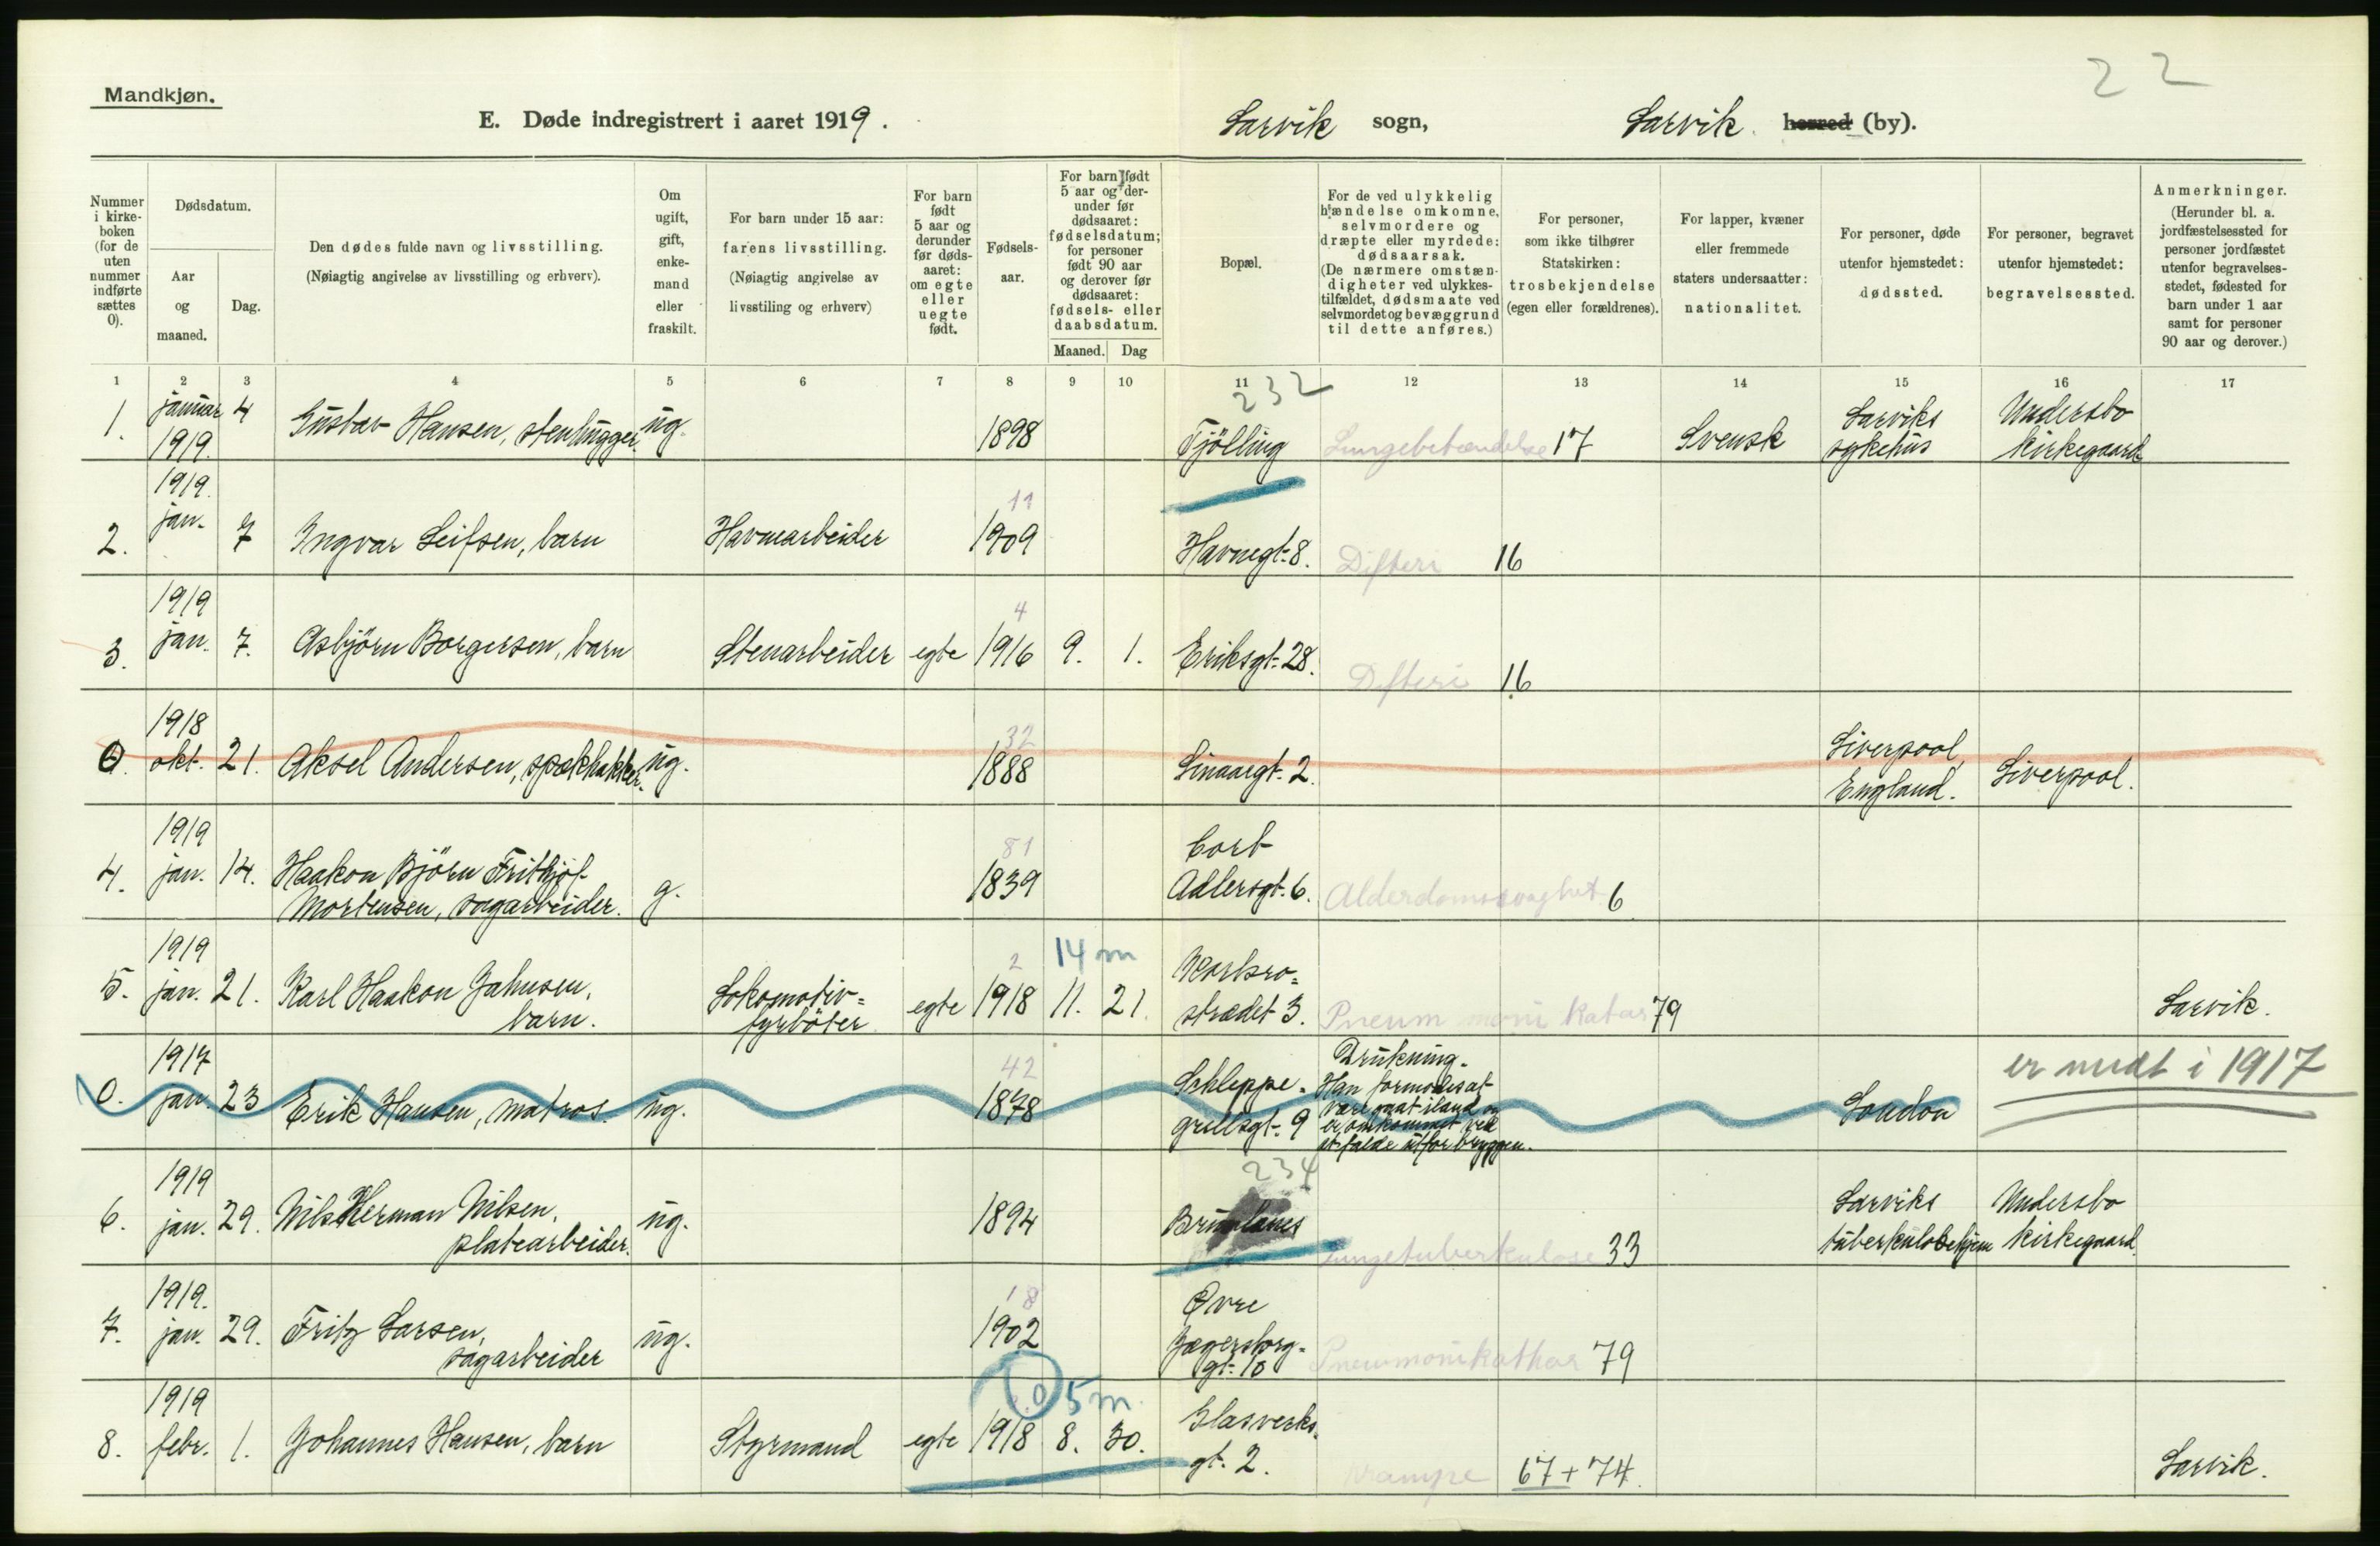 22
Mandkjøn.
E. Døde indregistrert i aaret 1919. Larvik sogn, Larvik herred (by).
Nummer i kirke-boken (for de uten nummer indførte sættes 0).
Dødsdatum.
Aar og maaned.
Dag.
Den dødes fulde navn og livsstilling. (Nøiagtig angivelse av livsstilling og erhverv).
Om ugift, gift, enke-mand eller fraskilt.
For barn under 15 aar: farens livsstilling. (Nøiagtig angivelse av livsstiling og erhverv)
For barn født 5 aar og derunder før døds-aaret: om egte eller uegte født.
Fødsels-aar.
For barn født 5 aar og der-under før dødsaaret: fødselsdatum; for personer født 90 aar og derover før dødsaaret: fødsels- eller daabsdatum.
Maaned. Dag
Bopæl.
For de ved ulykkelig hændelse omkomne, selvmordere og dræpte eller myrdede: dødsaarsak. (De nærmere omstæn-digheter ved ulykkes-tilfældet, dødsmaate ved selvmordet og bevæggrund til dette anføres.)
For personer, som ikke tilhører Statskirken: trosbekjendelse (egen eller forældrenes).
For lapper, kvæner eller fremmede staters undersaatter: nationalitet.
For personer, døde utenfor hjemstedet: dødssted.
For personer, begravet utenfor hjemstedet: begravelsessted.
Anmerkninger. (Herunder bl. a. jordfæstelsessted for personer jordfæstet utenfor begravelses-stedet, fødested for barn under 1 aar samt for personer 90 aar og derover.)
1 2 3 4 5 6 7 8 9 10 11 12 13 14 15 16 17
232
1. januar 1919. 4 Gustav Hansen, stenhugger. ug. 1898 Tjölling Lungebetændelse 17 Svensk Larviks sykehus Undersbo kirkegaard
2. 1919. jan. 7 Ingvar Leifsen, barn Havnearbeider 11 1909 Havnegt. 8. Difteri 16
3. 1919 jan. 7. Asbjörn Borgersen, barn Stenarbeider egte 4 1916 9. 1. Eriksgt. 28. Difteri 16
0. 1918 okt. 21. Aksel Andersen, spækhakker. ug. 32 1888 Linaaegt. 2. Liverpool, England. Liverpool.
4. 1919 jan. 14. Haakon Björn Frithjof Mortensen, sagarbeider. g. 81 1839 Cort Adlersgt. 6. Alderdomssvaghet 6
5. 1919 jan. 21. Karl Haakon Jahnsen, barn. Lokomotiv=fyrböter egte 2 1918 14 m 11. 21. strædet 3. Pneum moni katar 79 Larvik.
0. 1917 jan. 23 Erik Hansen, matros. ug. 42 1878 Schleppe-grellsgt. 9 Drukning. Han formodes at være gaat iland og er omkommet ved at falde utfor bryggen. London er medt i 1917
234
6. 1919 jan. 29. Nils Herman Nilsen, platearbeider. ug. 1894 Brunlanes Lungetuberkulose 33 Larviks tuberkulosehjem Undersbo kirkegaard.
7. 1919. jan. 29. Fritz Larsen, sagarbeider ug. 18 1902 Øvre Jægersborg-gt. 10 Pneumonikathar 79
8. 1919 febr. 1. Johannes Hansen, barn Styrmand egte 0 5 m. 1918 8. 30. Glasverks-gt. 2. Krampe 67 + 74. Larvik.